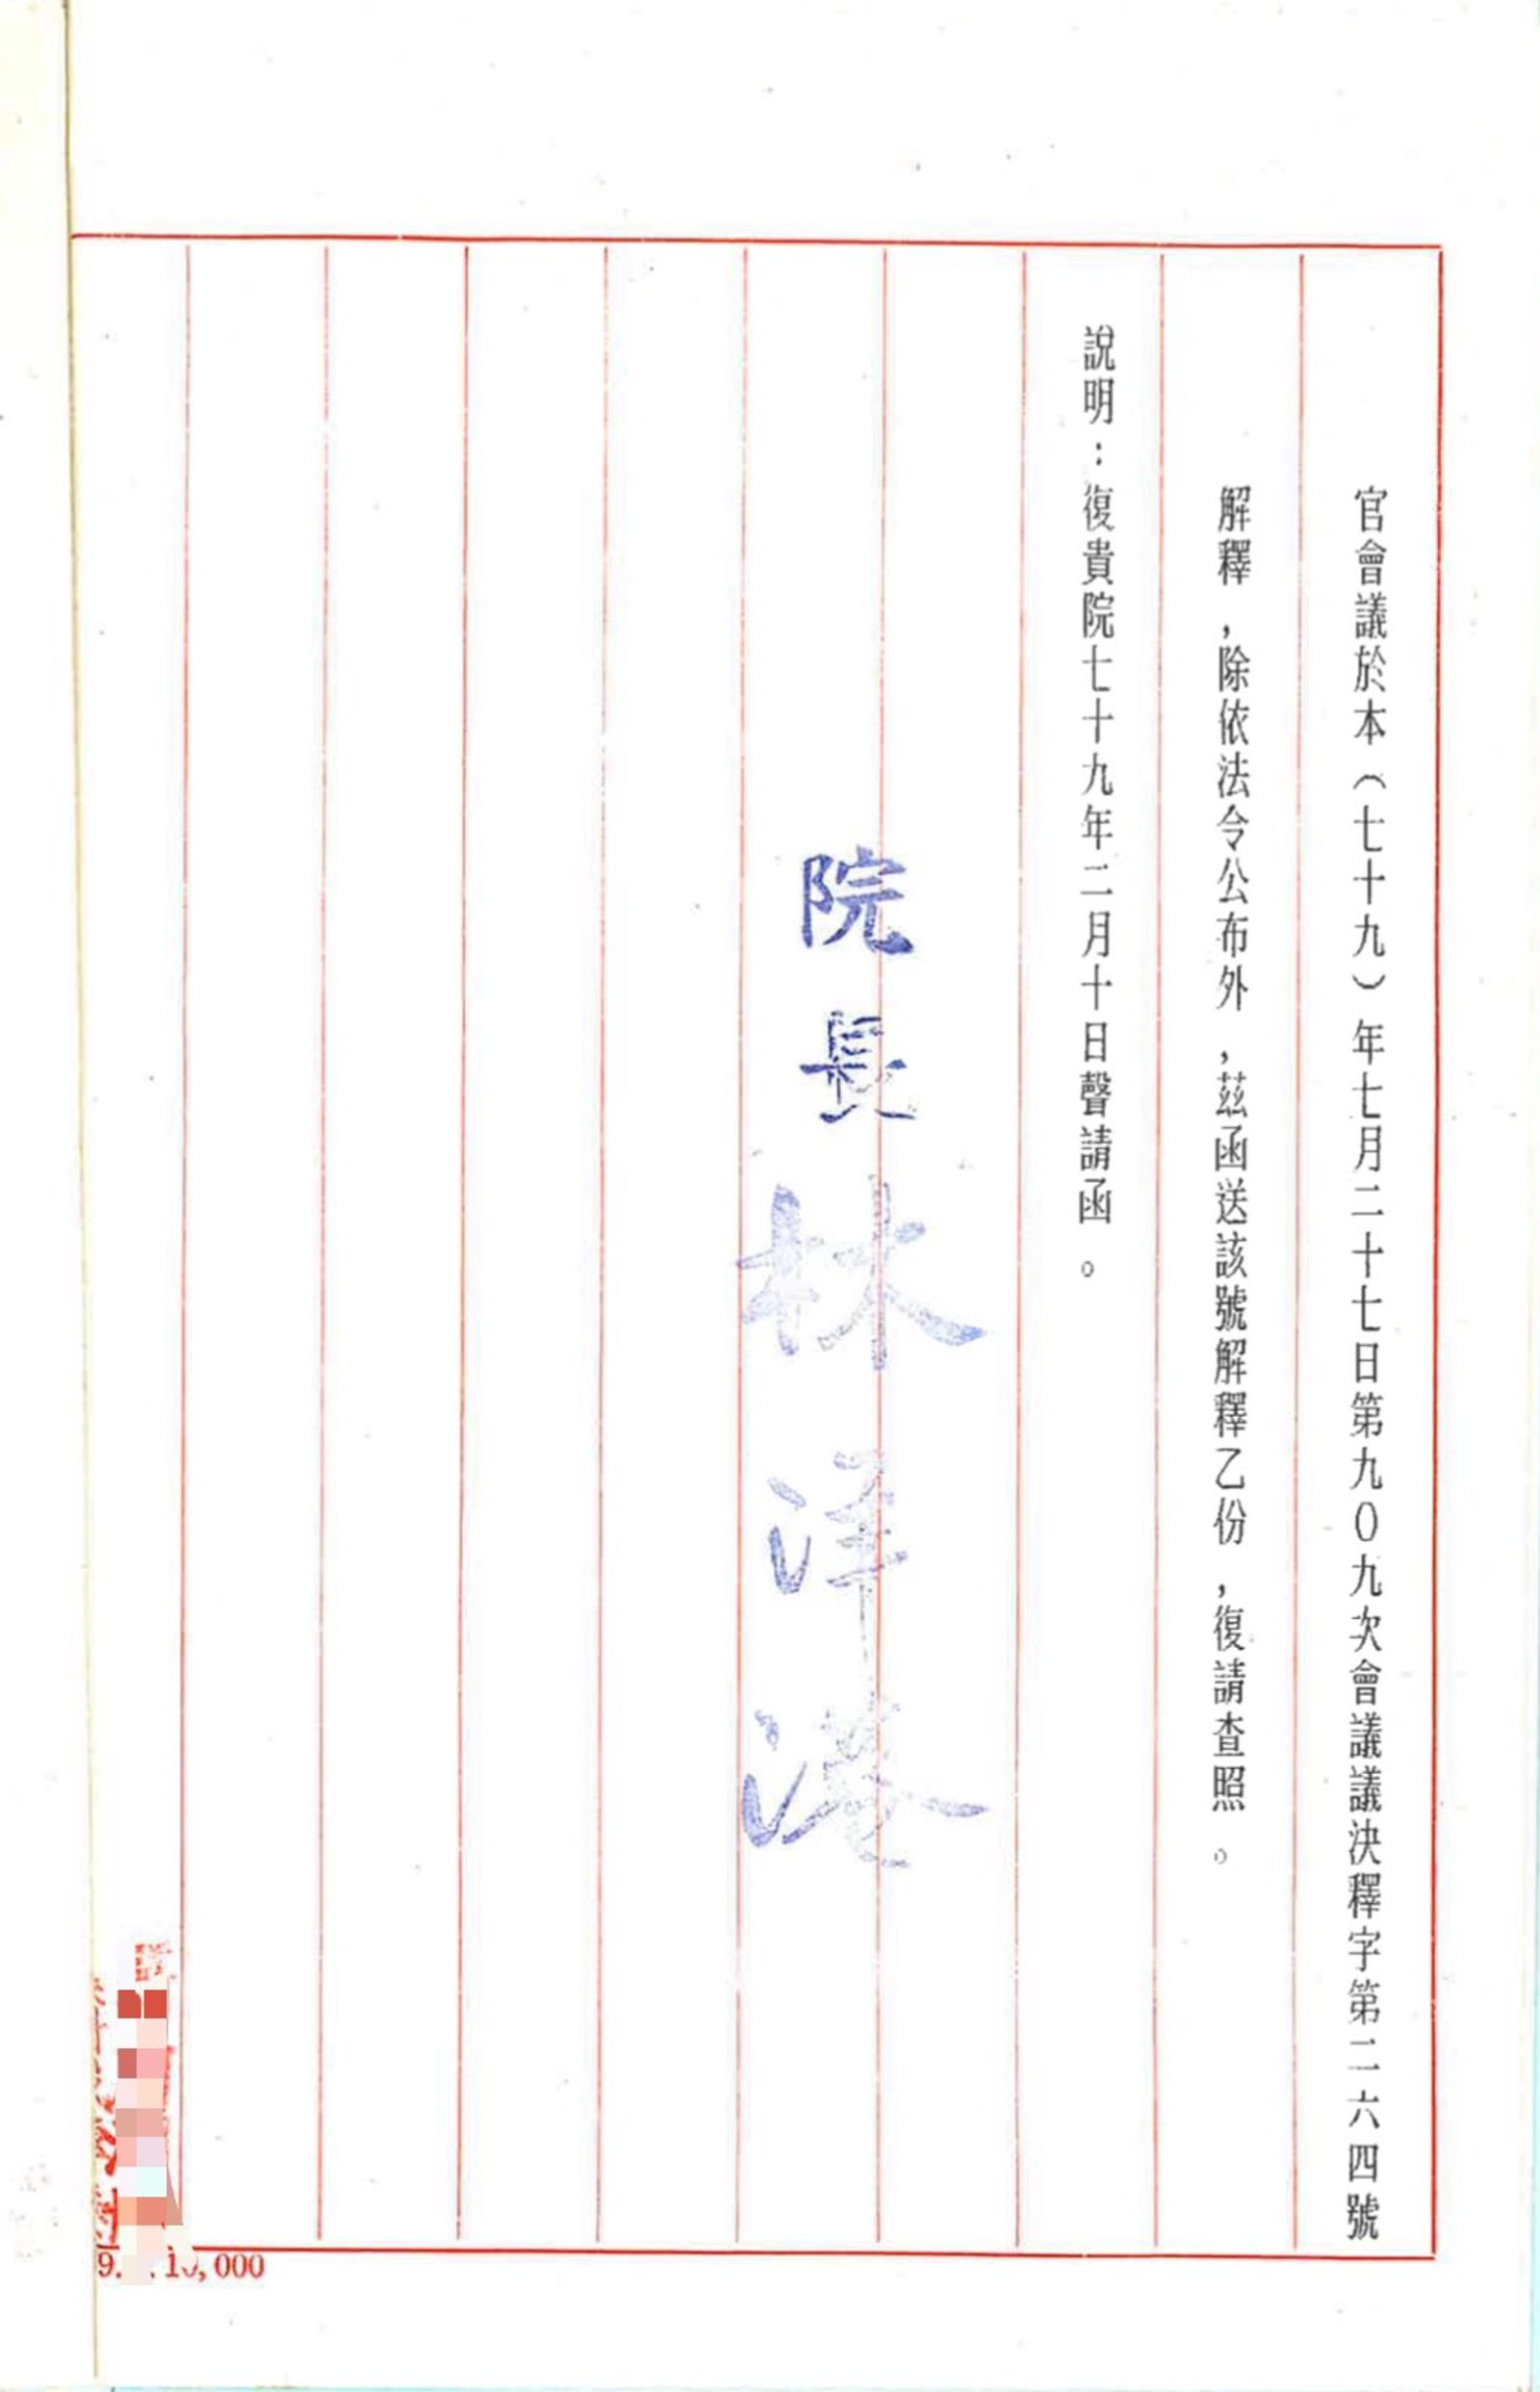 官會議於本（七十九）年七月二十七日第九〇九次會議議決釋字第二六四號
解釋，除依法令公布外，茲函送該號解釋乙份，復請查照。
說明：復貴院七十九年二月十日聲請函。
院長林洋港